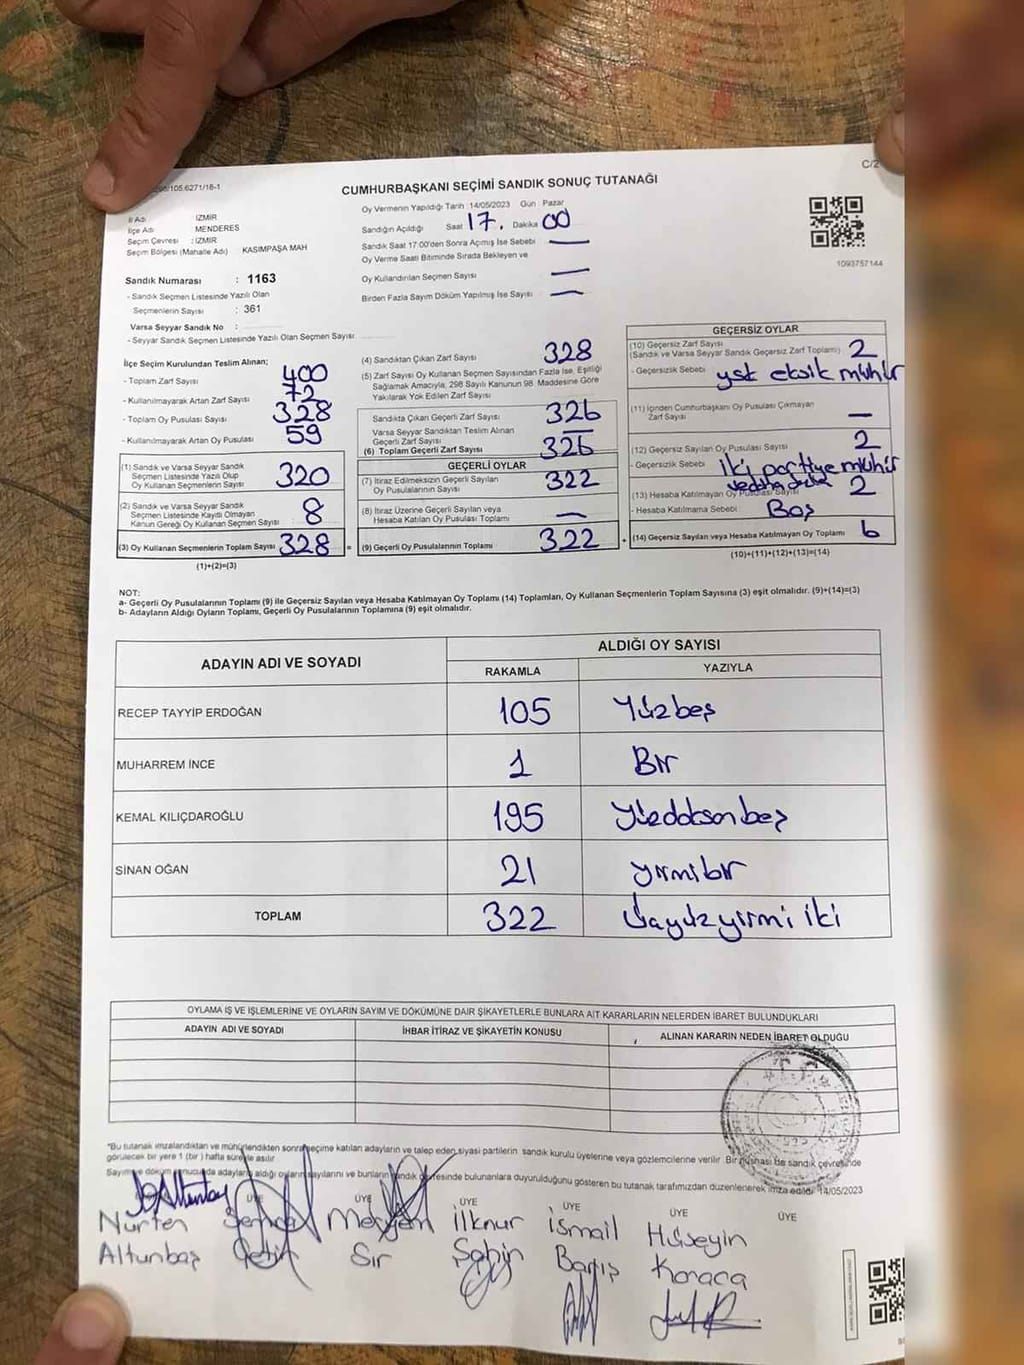 CUMHURBAŞKANI SEÇİMİ SANDIK SONUÇ TUTANAĞI
C/2
105.6271/16-1
İl Adı İZMİR
İlçe Adı MENDERES
Seçim Çevresi : İZMİR
Seçim Bölgesi (Mahalle Adı) KASIMPAŞA MAH
Sandık Numarası : 1163
- Sandık Seçmen Listesinde Yazılı Olan
Seçmenlerin Sayısı : 361
Varsa Seyyar Sandık No :
- Seyyar Sandık Seçmen Listesinde Yazılı Olan Seçmen Sayısı
Oy Vermenin Yapıldığı Tarih 14/05/2023 Gün : Pazar
Sandığın Açıldığı Saat 17. Dakika 00
Sandık Saat 17:00'den Sonra Açılmış İse Sebebi —
Oy Verme Saati Bitiminde Sırada Bekleyen ve
Oy Kullandırılan Seçmen Sayısı —
Birden Fazla Sayım Döküm Yapılmış İse Sayısı —
1093757144
İlçe Seçim Kurulundan Teslim Alınan;
- Toplam Zarf Sayısı 400
- Kullanılmayarak Artan Zarf Sayısı 72
- Toplam Oy Pusulası Sayısı 328
- Kullanılmayarak Artan Oy Pusulası 59
(1) Sandık ve Varsa Seyyar Sandık
Seçmen Listesinde Yazılı Olup
Oy Kullanan Seçmenlerin Sayısı 320
(2) Sandık ve Varsa Seyyar Sandık
Seçmen Listesinde Kayıtlı Olmayan
Kanun Gereği Oy Kullanan Seçmen Sayısı 8
(3) Oy Kullanan Seçmenlerin Toplam Sayısı 328 =
(1)+(2)=(3)
(4) Sandıktan Çıkan Zarf Sayısı 328
(5) Zarf Sayısı Oy Kullanan Seçmen Sayısından Fazla İse, Eşitliği
Sağlamak Amacıyla; 298 Sayılı Kanunun 98 Maddesine Göre
Yakılarak Yok Edilen Zarf Sayısı
Sandıkta Çıkan Geçerli Zarf Sayısı 326
Varsa Seyyar Sandıktan Teslim Alınan
Geçerli Zarf Sayısı —
(6) Toplam Geçerli Zarf Sayısı 326
GEÇERLİ OYLAR
(7) İtiraz Edilmeksizin Geçerli Sayılan
Oy Pusulalarının Sayısı 322
(8) İtiraz Üzerine Geçerli Sayılan veya
Hesaba Katılan Oy Pusulası Toplamı —
(9) Geçerli Oy Pusulalarının Toplamı 322 +
GEÇERSİZ OYLAR
(10) Geçersiz Zarf Sayısı
(Sandık ve Varsa Seyyar Sandık Geçersiz Zarf Toplamı) 2
- Geçersizlik Sebebi ysk eksik mühür
(11) İçinden Cumhurbaşkanı Oy Pusulası Çıkmayan
Zarf Sayısı —
(12) Geçersiz Sayılan Oy Pusulası Sayısı 2
- Geçersizlik Sebebi İki partiye mühür
(13) Hesaba Katılmayan Oy Pusulası Sayısı 2
- Hesaba Katılmama Sebebi Boş
(14) Geçersiz Sayılan veya Hesaba Katılmayan Oy Toplamı 6
(10)+(11)+(12)+(13)=(14)
NOT:
a- Geçerli Oy Pusulalarının Toplamı (9) ile Geçersiz Sayılan veya Hesaba Katılmayan Oy Toplamı (14) Toplamları, Oy Kullanan Seçmenlerin Toplam Sayısına (3) eşit olmalıdır. (9)+(14)=(3)
b- Adayların Aldığı Oyların Toplamı, Geçerli Oy Pusulalarının Toplamına (9) eşit olmalıdır.
ADAYIN ADI VE SOYADI ALDIĞI OY SAYISI
RAKAMLA YAZIYLA
RECEP TAYYİP ERDOĞAN 105 Yüzbeş
MUHARREM İNCE 1 Bir
KEMAL KILIÇDAROĞLU 195 Yüzdoksan beş
SİNAN OĞAN 21 yirmibir
TOPLAM 322 Üçyüzyirmi iki
OYLAMA İŞ VE İŞLEMLERİNE VE OYLARIN SAYIM VE DÖKÜMÜNE DAİR ŞİKAYETLERLE BUNLARA AİT KARARLARIN NELERDEN İBARET BULUNDUKLARI
ADAYIN ADI VE SOYADI İHBAR İTİRAZ VE ŞİKAYETİN KONUSU ALINAN KARARIN NEDEN İBARET OLDUĞU
*Bu tutanak imzalandıktan ve mühürlendikten sonra seçime katılan adayların ve talep eden siyasi partilerin sandık kurulu üyelerine veya gözlemcilerine verilir. Bir nüshası de sandık çevresinde
görülecek bir yere 1 (bir) hafta süreyle asılır
Sayım ve döküm sonucu da adayların aldığı oyların sayılarını ve bunların çevresinde bulunanlara duyurulduğunu gösteren bu tutanak tarafımızdan düzenlenerek imza edildi. 14/05/2023
ÜYE ÜYE ÜYE ÜYE ÜYE ÜYE
Nurten Meryem İlknur İsmail Hüseyin
Altunbaş Çetin Sır Şahin Barış Karaca